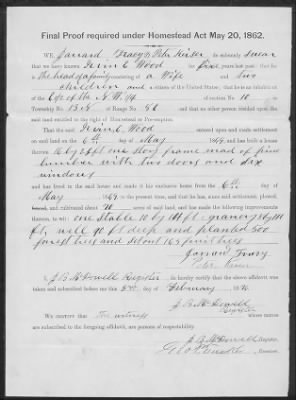 Final Proof required under Homestead Act May 20, 1862.
WE, Jarrard Tracy & Peter Keiser do solemnly swear
that we have known Irvin E Wood for five years last past; that he
is the head of a family consisting of a Wife and two
children and a citizen of the United States; that he is an inhabitant
of the E ½ of the N.W ¼ of section No. 10 in
Township No. 3 N of Range No. 5 E and that no other person resided upon the
said land entitled to the right of Homestead or Pre-emption.
That the said Irvin E Wood entered upon and made settlement
on said land on the 6th day of May 186 , and has built a house
thereon 16 by 22 ft one story frame mad of pine
lumber with two doors and six
windows
and has lived in the said house and made it his exclusive home from the 6th day of
May 186 , to the present time, and that he has, since said settlement, plowed,
and cultivated about 70 acres of said land, and has made the following improvements
thereon, to wit: one stable 10 by ft granery by
ft, well 90 ft deep and planted 500
forest trees and about 165 fruit trees
Jarrard Tracy
Peter Keiser
I, J B McDowell Register do hereby certify that the above affidavit, was
taken and subscribed before me this day of February 18
J. B. McDowell
Register
WE CERTIFY that the witnesses whose names
are subscribed to the foregoing affidavit, are persons of respectability.
J. B. McDowell Register.
Receiver.